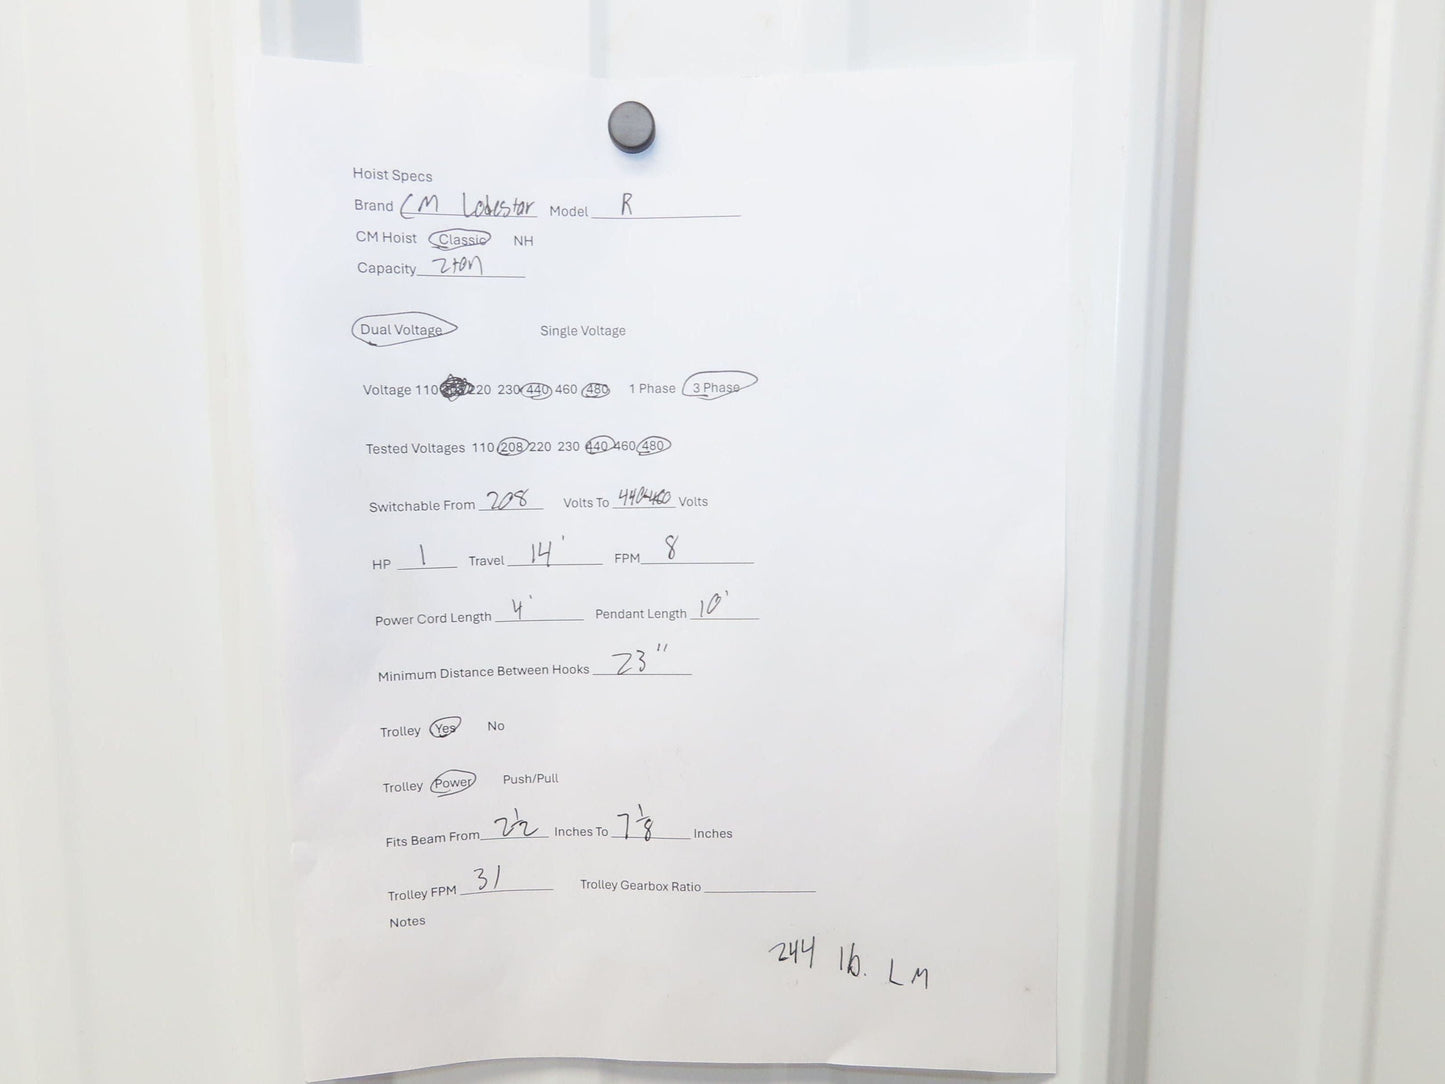 Hoist Specs
Brand CM Lodestar Model R
CM Hoist Classic NH
Capacity 2ton
Dual Voltage Single Voltage
Voltage 110 220 230 440 460 480 1 Phase 3 Phase
Tested Voltages 110 208 220 230 440 460 480
Switchable From 208 Volts To 440-460 Volts
HP 1 Travel 14' FPM 8
Power Cord Length 4' Pendant Length 10'
Minimum Distance Between Hooks 23"
Trolley Yes No
Trolley Power Push/Pull
Fits Beam From 2 1/2 Inches To 7 1/8 Inches
Trolley FPM 31 Trolley Gearbox Ratio
Notes
244 lb. LM